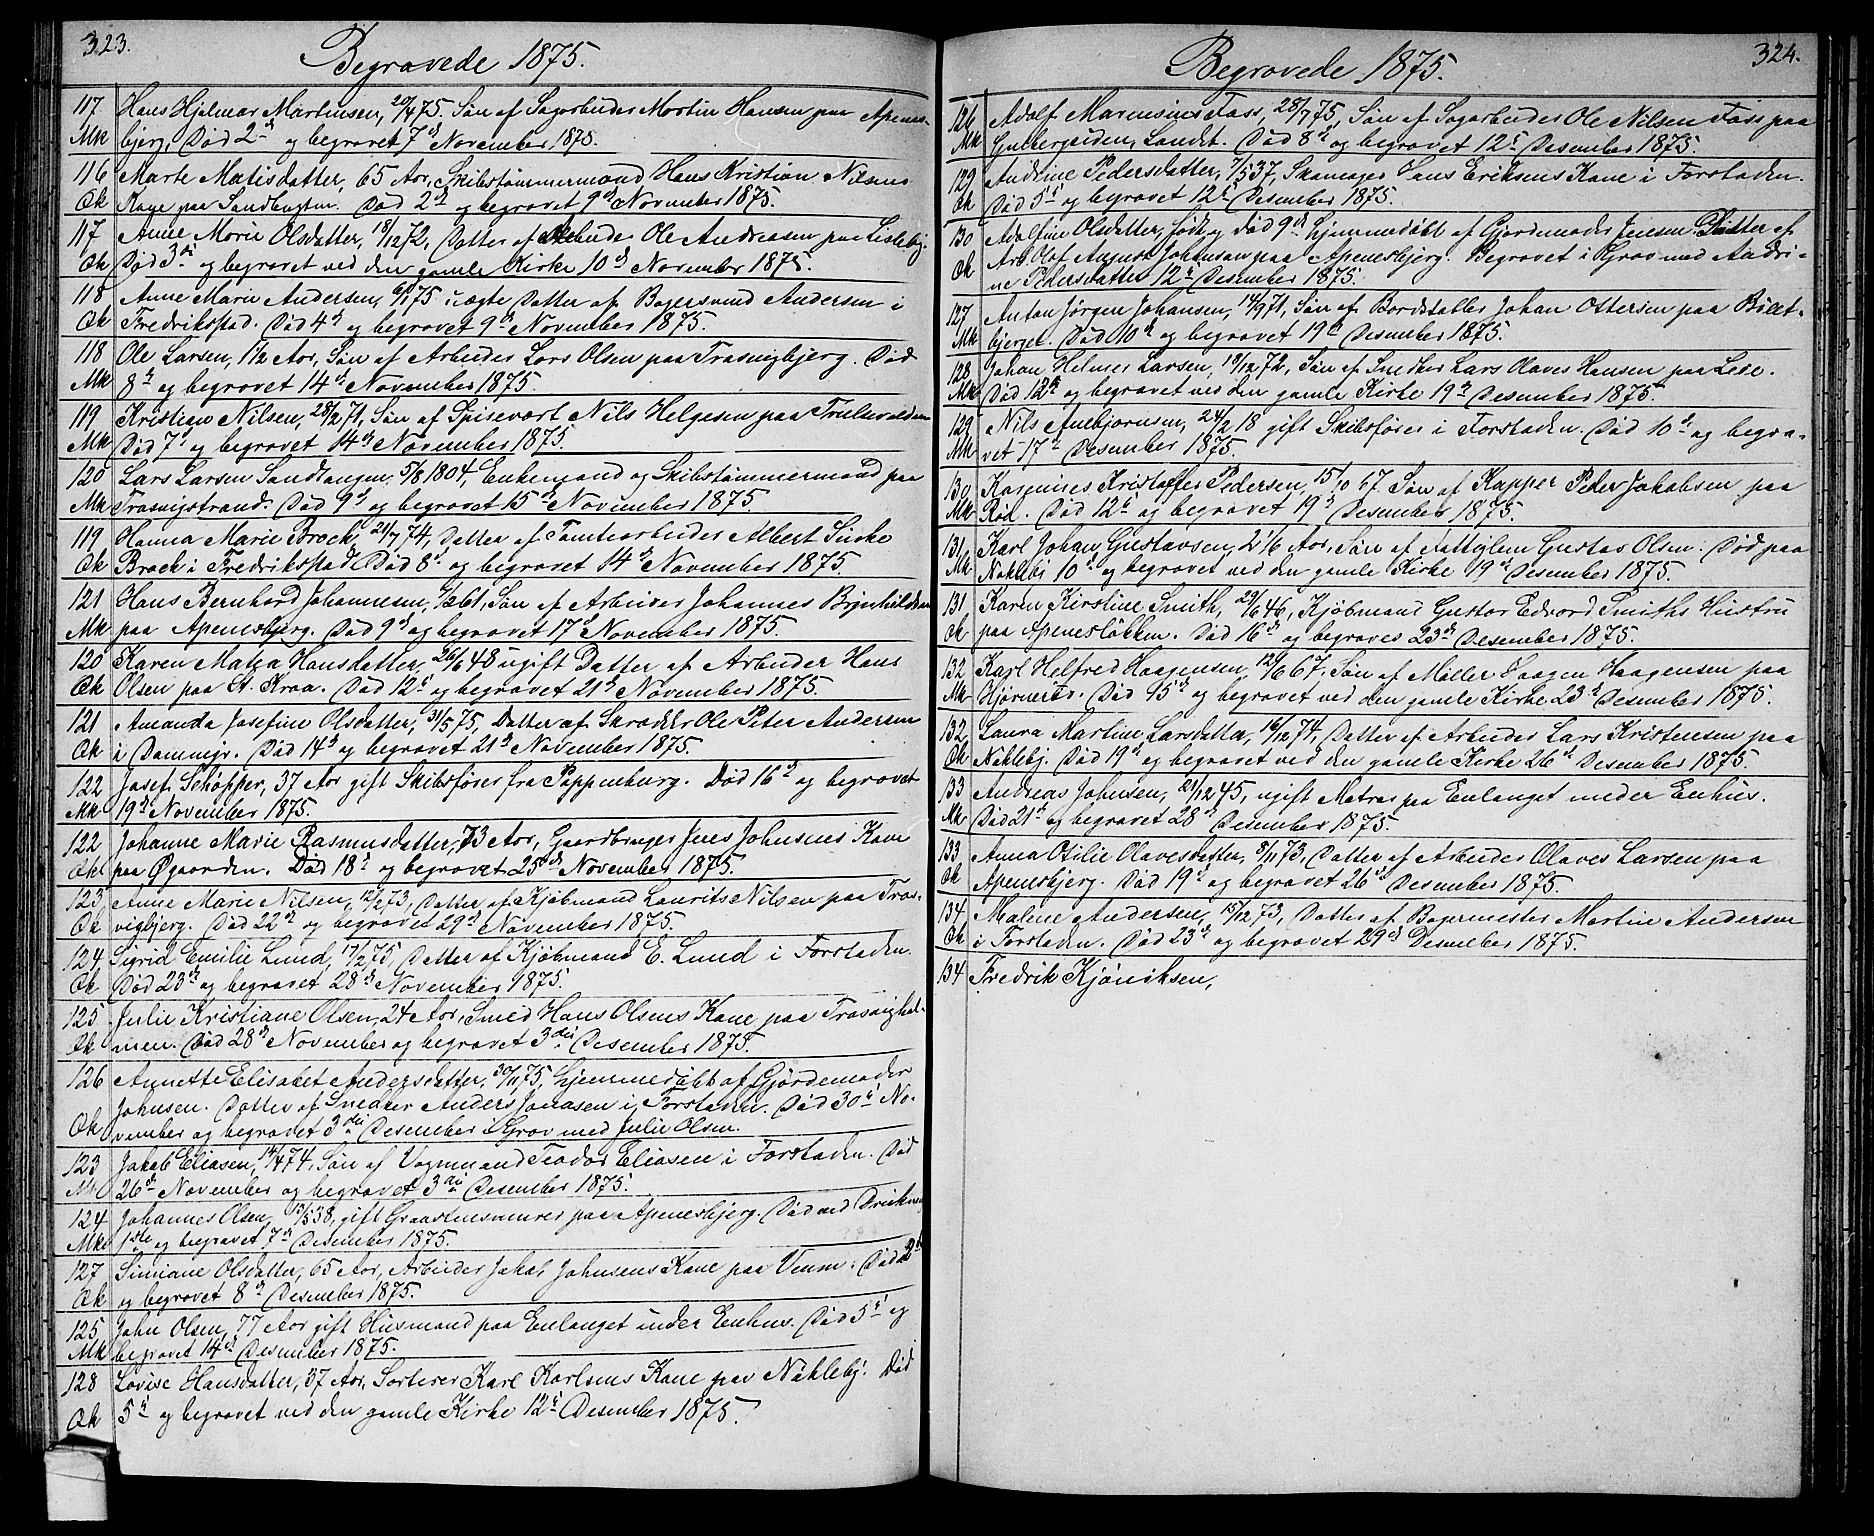 323.
Begravede 1875.
117 Hans Hjelmar Martinsen, 20/4 75. Søn af Sagarbeider Martin Hansen paa Apenes-
Mk bjerg. Død 2den og begravet 7de November 1875.
116 Marte Matisdatter, 65 Aar, Skibstømmermand Hans Kristian Nilsens
Qk Kone paa Sandbugten. Død 2den og begravet 9de November 1875.
117 Anne Marie Olsdatter, 18/12 72, Datter af Ole Andreasen paa Lisleby.
Qk Død 3die og begravet ved den gamle Kirke 10de November 1875.
118 Anne Marie Andersen, 6/1 75 uægte Datter af Bagersvend Andersen i
Qk Fredrikstad. Død 4de og begravet 9de November 1875.
118 Ole Larsen, 1 1/2 Aar, Søn af Arbeider Lars Olsen paa Trosvigbjerg. Død
Mk 8de og begravet 14de November 1875.
119 Kristian Nilsen, 28/2 71, Søn af Spisevært Nils Helgesen paa
Mk Død 7de og begravet 14de November 1875.
120 Lars Larsen Sandtangen, 5/8 1804, Enkemand og Skibstømmermand paa
Mk Trosvigstrand. Død 9de og begravet 15de November 1875.
119 Hanna Marie Brock, 21/7 74, Datter af Tomtearbeider Albert
Qk Brock i Fredrikstad. Død 8de og begravet 14de November 1875.
121 Hans Bernhard Johannesen, 61, Søn af Arbeider Johannes Brynhildsen
Mk paa Apenesbjerg. Død 9de og begravet 17de November 1875.
120 Karen Matea Hansdatter, 26/6 48 ugift Datter af Arbeider Hans
Qk Olsen paa St. Kraa. Død 12te og begravet 21de November 1875.
121 Amanda Josefine Olsdatter, 31/5 75, Datter af Skrædder Ole Peter Andersen
Qk i Dammyr. Død 14de og begravet 21de November 1875.
122 Josef Schöpper, 37 Aar gift Skibsfører fra Pappenburg. Død 16de og begravet
Mk 19de November 1875.
122 Johanne Marie Rasmusdatter, 73 Aar, Gaardbruger Jens Johnsens Kone
Qk paa Øgaarden. Død 18de og begravet 25de November 1875.
123 Anne Marie Nilsen, 12/2 73, Datter af Kjøbmand Laurits Nilsen paa Tros-
Qk vigbjerg. Død 22de og begravet 29de November 1875.
124 Sigrid Emilie Lund, 17/2 75, Datter af Kjøbmand E. Lund i Forstaden.
Qk Død 23de og begravet 28de November 1875.
125 Julie Kristiane Olsen, 24 Aar, Smed Hans Olsens Kone paa Trosvighol-
Qk men. Død 28de November og begravet 3die Desember 1875.
126 Annette Elisabet Andersdatter, 30/11 75, hjemmedøbt af Gjordemoder
Johnsen. Datter af Snedker Anders Jonasen i Forstaden. Død 30te No-
Qk vember og begravet 3die Desember i Grav med Julie Olsen.
123 Jakob Eliasen, 14/4 74, Søn af Vognmand Teodor Eliasen i Forstaden. Død
Mk 26de November og begravet 3die Desember 1875.
124 Johannes Olsen, 13/5 38, gift Graastensmurer paa Apenesbjerg. Død ved Drukning
Mk 1ste og begravet 7de Desember 1875.
127 Simiane Olsdatter, 65 Aar, Arbeider Jakob Johnsens Kone paa Veum. Død 2den
Qk og begravet 8de Desember 1875.
125 John Olsen, 77 Aar gift Husmand paa Enlanget under Enhus. Død 5te og
Mk begravet 14de Desember 1875.
128 Lovise Hansdatter, 37 Aar, Sorterer Karl Karlsens Kone paa Nökleby. Død
Qk 5te og begravet ved den gamle Kirke 12te Desember 1875.
324.
Begravede 1875.
126 Adolf Marensius Foss, 28/7 75, Søn af Sagarbeider Ole Nilsen Foss paa
Mk Gulbergsiden, Landet. Død 8de og begravet 12te Desember 1875.
129 Andrine Pedersdatter, 7/5 37, Skomager Hans Eriksens Kone i Forstaden.
Qk Død 5te og begravet 12te Desember 1875.
130 Adolfine Olsdatter, født og død 9de hjemmedøbt af Gjordemoder Jensen Datter af
Arb. Olof August Johansen paa Apenesbjerg. Begravet i Grav med Andri-
Qk ne Pedersdatter 12te Desember 1875.
127 Anton Jørgen Johansen, 14/9 71, Søn af Bordstabler Johan Ottersen paa Bilet-
Mk bjerget. Død 10de og begravet 19de Desember 1875.
128 Johan Helmer Larsen, 19/12 72, Søn af Snedker Lars Olaves Hansen paa Leie.
Mk Død 12te og begravet ved den gamle Kirke 19de Desember 1875.
129 Nils Anebjørnsen, 24/2 18 gift Skibsfører i Forstaden. Død 10de og begra-
Mk vet 17de Desember 1875.
130 Kristoffer Pedersen, 15/10 67. Søn af Kapper Peder Jakobsen paa
Mk Rød. Død 12te og begravet 19de Desember 1875.
131 Karl Johan Gustavsen, 2 1/6 Aar, Søn af Fattiglem Gustav Olsen. Død paa
Mk Nökleby 10de og begravet ved den gamle Kirke 19de Desember 1875.
131 Karen Kirstine Smith, 29/6 46, Kjøbmand Gustav Edvard Smiths Hustru
Qk paa Apenesløkken. Død 16de og begraves 23de Desember 1875.
132 Karl Helfred Haagensen, 12/6 67. Søn af Møller Haagen Haagensen paa
Mk Hjørnerød. Død 15de og begravet ved den gamle Kirke 23de Desember 1875.
132 Laura Martine Larsdatter, 16/12 74, Datter af Arbeider Lars Kristensen paa
Qk Nökleby. Død 19de og begravet ved den gamle Kirke 26de Desember 1875.
133 Andreas Johnsen, 21/12 45, ugift Matros paa Enlanget under Enhus.
Mk Død 21de og begravet 28de Desember 1875.
133 Anna Otilie Olavesdatter, 8/11 73, Datter af Arbeider Olaves Larsen paa
Qk Apenesbjerg. Død 19de og begravet 26de Desember 1875.
134 Malene Andersen, 15/12 73, Datter af Bagermester Martin Andersen
Qk i Forstaden. Død 23de og begravet 29de Desember 1875.
134 Fredrik Kjøniksen,